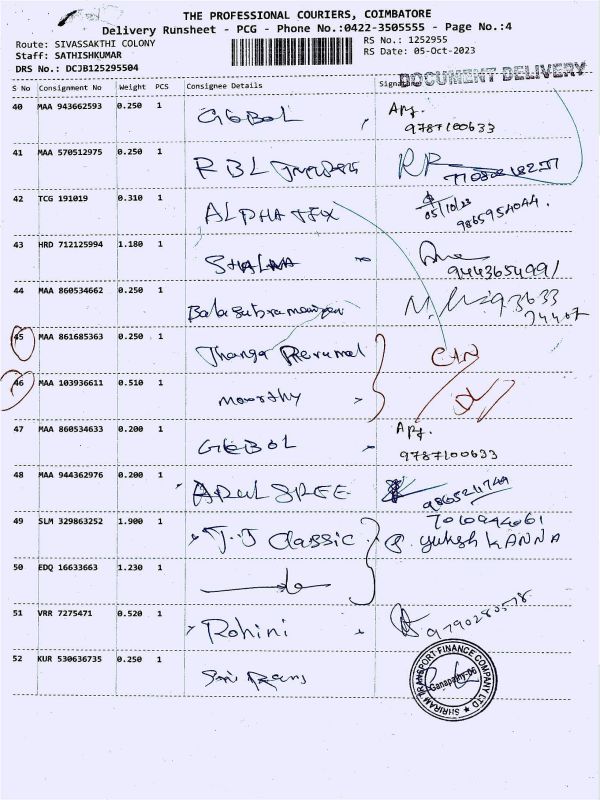 THE PROFESSIONAL COURIERS, COIMBATORE
Delivery Runsheet - PCG - Phone No.:0422-3505555 - Page No.:4
Route: SIVASSAKTHI COLONY
Staff: SATHISHKUMAR
DRS No.: DCJB125295504
RS No.: 1252955
RS Date: 05-Oct-2023
DOCUMENT DELIVERY
S No Consignment No Weight PCS Consignee Details Signature
40 MAA 943662593 0.250 1 GEBOL Apj.
9787100633
41 MAA 570512975 0.250 1 RBL
42 TCG 191019 0.310 1 ALPHA TEX
05/10/23
9865954044.
43 HRD 712125994 1.180 1 SHALMA
9443654991
44 MAA 860534662 0.250 1 Balasubramaniyan
45 MAA 861685363 0.250 1 Thanga Perumal
46 MAA 103936611 0.510 1 moorthy
47 MAA 860534633 0.200 1 GEBOL Apj.
9787100633
48 MAA 944362976 0.200 1 ARUL SREE
49 SLM 329863252 1.900 1 J.J Classic
KANNA
50 EDQ 16633663 1.230 1
51 VRR 7275471 0.520 1 Rohini 9790280578
52 KUR 530636735 0.250 1 Sri Ram
SHRIRAM TRANSPORT FINANCE COMPANY LTD
Ganapathy-06